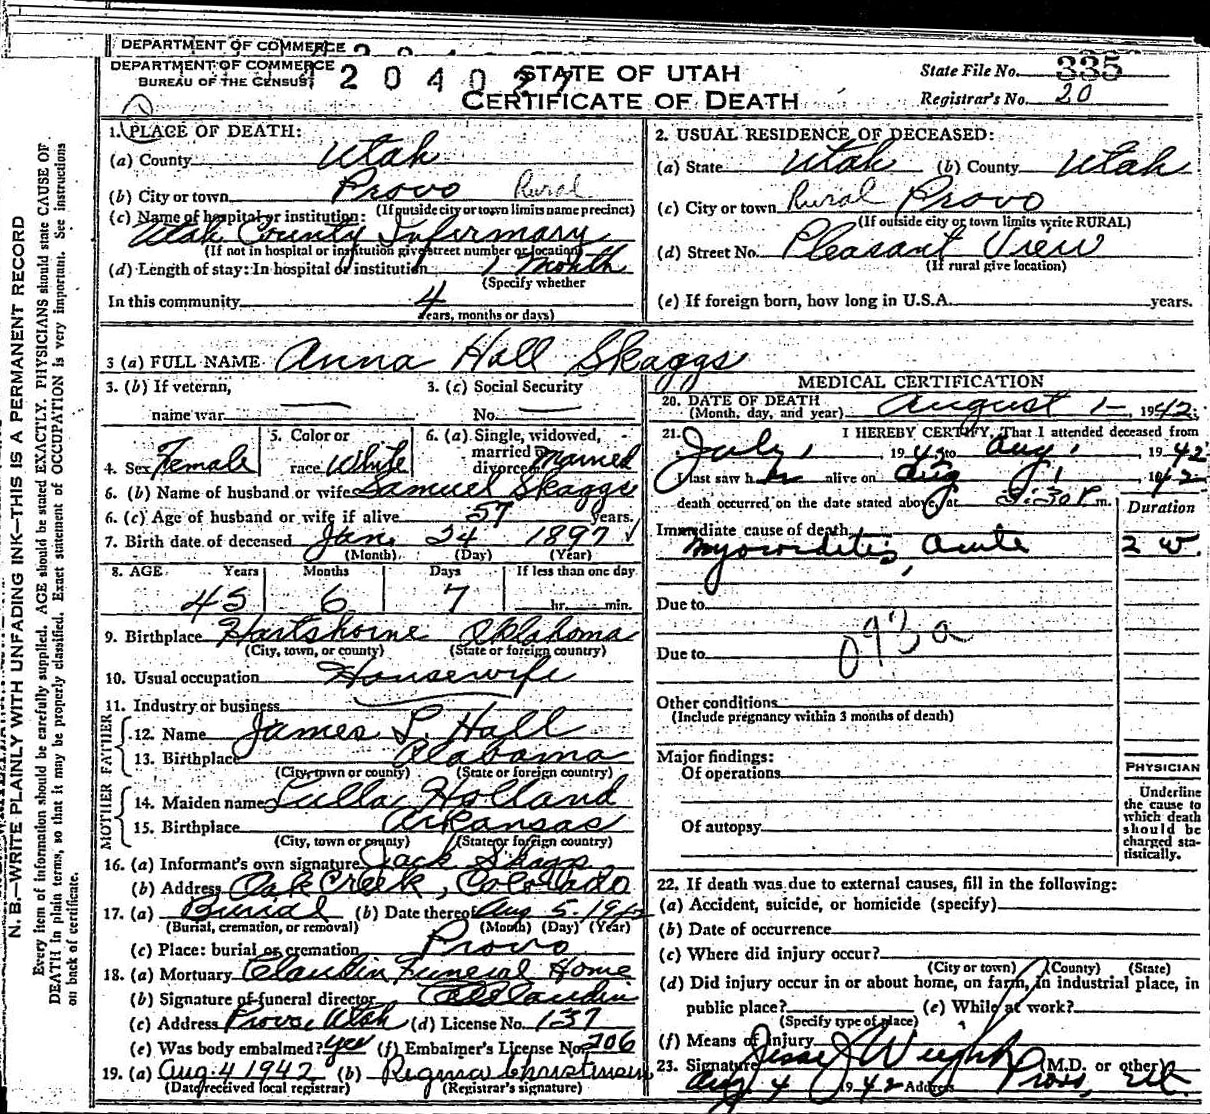 DEPARTMENT OF COMMERCE
DEPARTMENT OF COMMERCE
BUREAU OF THE CENSUS
2040
STATE OF UTAH
CERTIFICATE OF DEATH
State File No. 335
Registrar's No. 20
N. B.—WRITE PLAINLY WITH UNFADING INK—THIS IS A PERMANENT RECORD
Every item of information should be carefully supplied. AGE should be stated EXACTLY. PHYSICIANS should state CAUSE OF
DEATH in plain terms, so that it may be properly classified. Exact statement of OCCUPATION is very important. See instructions
on back of certificate.
1. PLACE OF DEATH:
(a) County Utah
(b) City or town Provo Rural
(If outside city or town limits name precinct)
(c) Name of hospital or institution:
Utah County Infirmary
(If not in hospital or institution give street number or location)
(d) Length of stay: In hospital or institution 1 month
(Specify whether
In this community 4
years, months or days)
2. USUAL RESIDENCE OF DECEASED:
(a) State Utah (b) County Utah
(c) City or town Rural Provo
(If outside city or town limits write RURAL)
(d) Street No. Pleasant View
(If rural give location)
(e) If foreign born, how long in U.S.A. years.
3 (a) FULL NAME Anna Hall Skaggs
3. (b) If veteran, name war —
3. (c) Social Security No. —
4. Sex Female
5. Color or race White
6. (a) Single, widowed, married or divorced Married
6. (b) Name of husband or wife Samuel Skaggs
6. (c) Age of husband or wife if alive 57 years.
7. Birth date of deceased Jan. 24 1897
(Month) (Day) (Year)
8. AGE Years Months Days If less than one day
45 6 7 hr. min.
9. Birthplace Hartshorne Oklahoma
(City, town, or county) (State or foreign country)
10. Usual occupation Housewife
11. Industry or business
FATHER
12. Name James L. Hall
13. Birthplace Alabama
(City, town or county) (State or foreign country)
MOTHER
14. Maiden name Lulla Holland
15. Birthplace Arkansas
(City, town or county) (State or foreign country)
16. (a) Informant's own signature Jack Skaggs
(b) Address Oak Creek, Colorado
17. (a) Burial (b) Date thereof Aug 5, 1942
(Burial, cremation, or removal) (Month) (Day) (Year)
(c) Place: burial or cremation Provo
18. (a) Mortuary Claudin Funeral Home
(b) Signature of funeral director
(c) Address Provo, Utah (d) License No. 137
(e) Was body embalmed? yes (f) Embalmer's License No. 206
19. (a) Aug. 4 1942 (b) Regina Christensen
(Date received local registrar) (Registrar's signature)
MEDICAL CERTIFICATION
20. DATE OF DEATH
(Month, day, and year) August 1 — , 1942.
21. I HEREBY CERTIFY, That I attended deceased from
July 1 1942 to Aug. 1 1942
I last saw h alive on Aug 1 1942
death occurred on the date stated above, at 3:30 P. m.
Duration
Immediate cause of death
Myocarditis, acute 2 w.
Due to
093a
Due to
Other conditions
(Include pregnancy within 3 months of death)
Major findings:
Of operations
Of autopsy
PHYSICIAN
Underline
the cause to
which death
should be
charged sta-
tistically.
22. If death was due to external causes, fill in the following:
(a) Accident, suicide, or homicide (specify)
(b) Date of occurrence
(c) Where did injury occur?
(City or town) (County) (State)
(d) Did injury occur in or about home, on farm, in industrial place, in
public place? (e) While at work?
(Specify type of place)
(f) Means of Injury
23. Signature Jesse J Weight (M.D. or other)
Aug 4 1942 Address Provo, Ut.